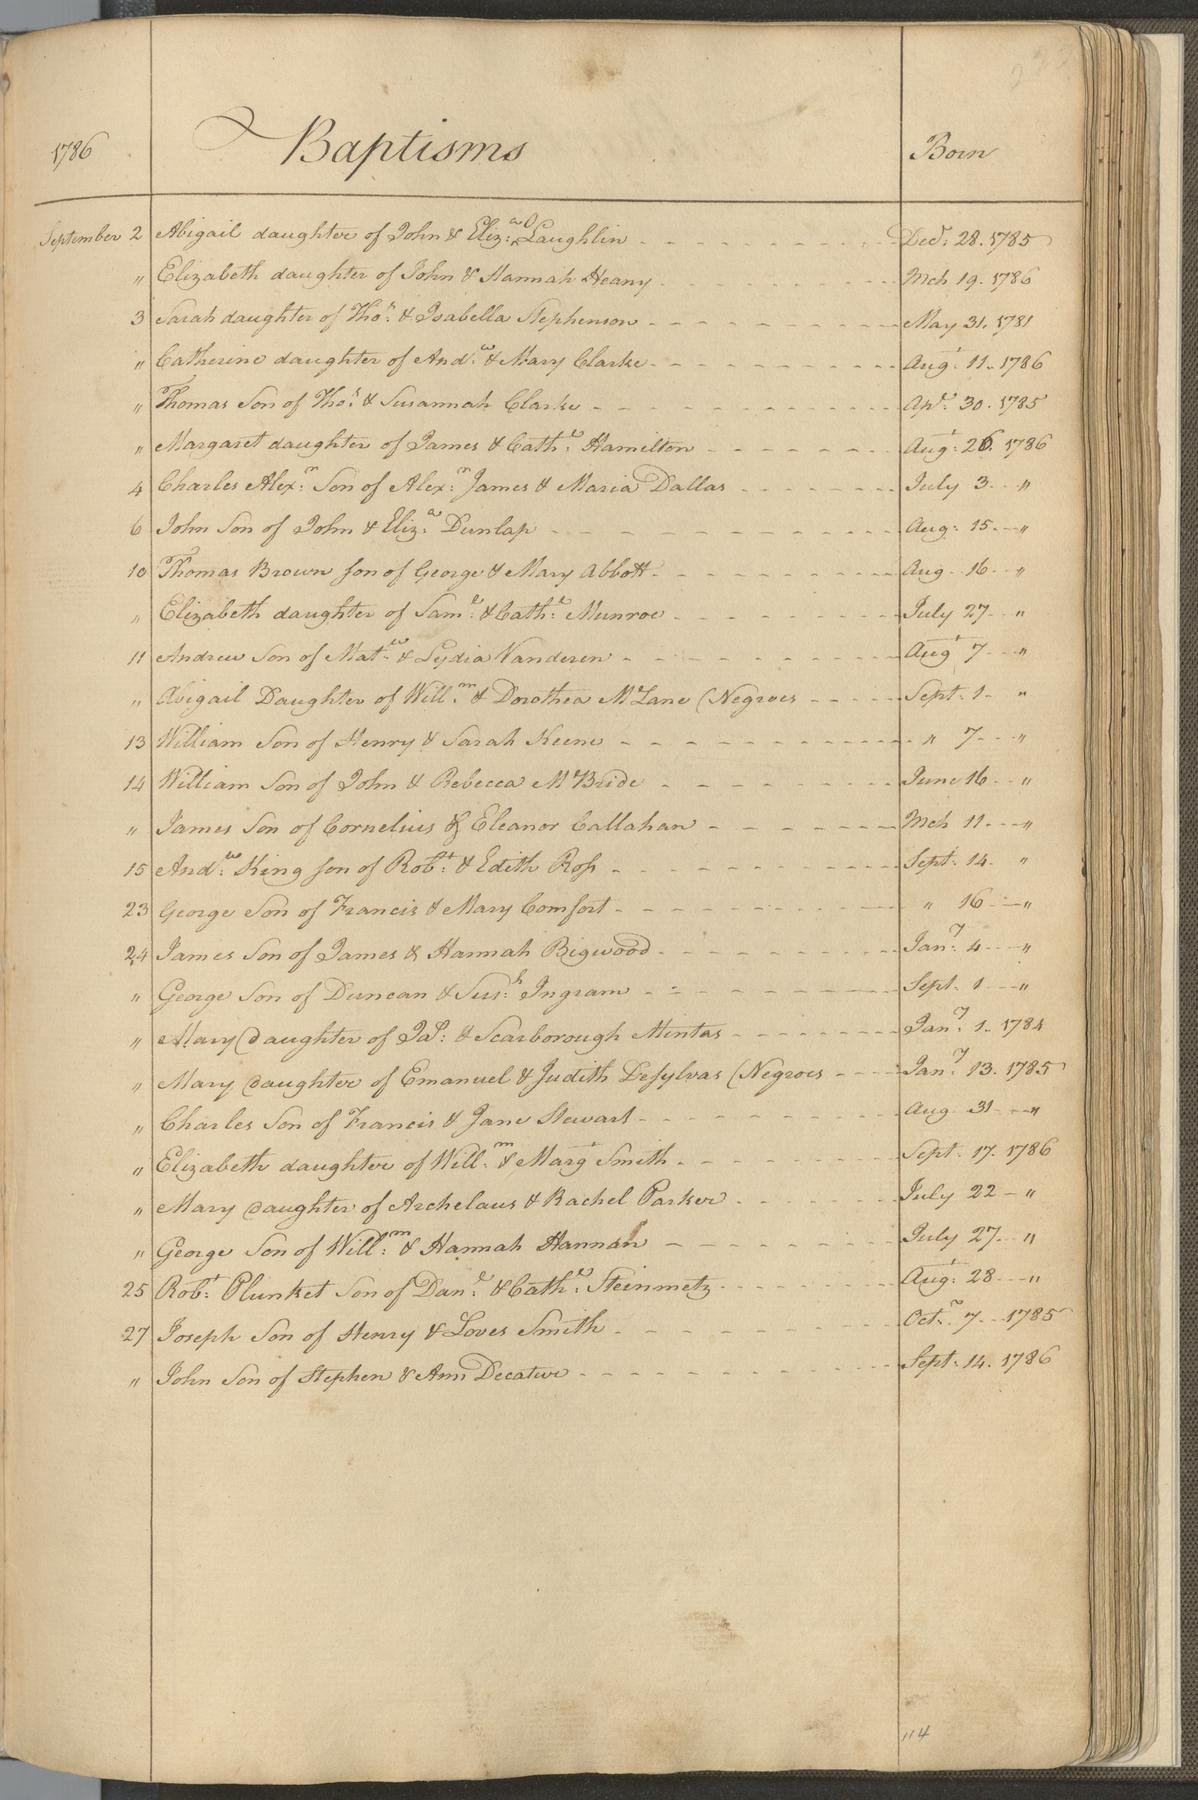 1786 Baptisms Born
September 2 Abigail daughter of John & Eliz:a O Laughlin Decr. 28. 1785
" Elizabeth daughter of John & Hannah Heany Mch 19. 1786
3 Sarah daughter of Thos. & Isabella Stephenson May 31. 1781
" Catherine daughter of Andw. & Mary Clarke Augt. 11. 1786
" Thomas Son of Thos. & Susannah Clarke Apr. 30. 1785
" Margaret daughter of James & Cathe. Hamilton Augt. 26. 1786
4 Charles Alexr. Son of Alexr. James & Maria Dallas July 3 "
6 John Son of John & Eliza. Dunlap Aug: 15. "
10 Thomas Brown son of George & Mary Abbott Aug. 16 "
" Elizabeth daughter of Saml. & Cathe. Munroe July 27 "
11 Andrew Son of Matw. & Lydia Vanderen Augt 7 "
" Abigail Daughter of Willm. & Dorothea McLane (Negroes Sept. 1. "
13 William Son of Henry & Sarah Keene " 7 "
14 William Son of John & Rebecca McBride June 16 "
" James Son of Cornelius & Eleanor Callahan Mch 11 "
15 Andw. King son of Robt. & Edith Ross Sept. 14. "
23 George Son of Francis & Mary Comfort " 16 "
24 James Son of James & Hannah Bigwood Jany. 4 "
" George Son of Duncan & Sush. Ingram Sept. 1 "
" Mary Daughter of & Scarborough Mintas Jany. 1. 1784
" Mary Daughter of Emanuel & Judith Desylvas (Negroes Jany. 13. 1785
" Charles Son of Francis & Jane Stewart Aug 31 "
" Elizabeth daughter of Willm. & Margt Smith Sept. 17. 1786
" Mary Daughter of Archelaus & Rachel Parker July 22 "
" George Son of Willm. & Hannah Hannah July 27 "
25 Robt. Plunket Son of Danl. & Cathe. Steinmetz Augt. 28 "
27 Joseph Son of Henry & Loves Smith Octr. 7. 1785
" John Son of Stephen & Ann Decatur Sept. 14. 1786
114